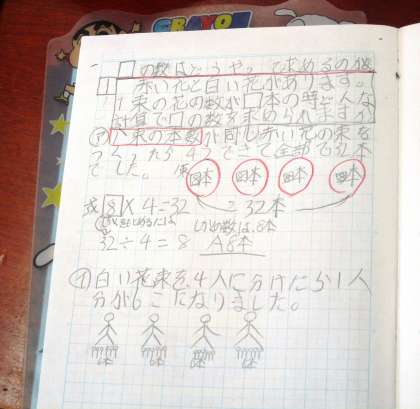 CRAYON
□の数はどうやって求めるのか
1 赤い花と白い花があります。
1束の花の数が□本の時どんな
計算で□の数を求められますか
ア 1束の本数が同じ赤い花の束を
つくったら4つできて全部で32本
でした。
□本 □本 □本 □本
式 8×4=32 = 32本
□を求めるには
□の数は、8本
32÷4=8 A8本
イ 白い花束を、4人に分けたら1人
分が6こになりました。
6本 6本 6本 6本